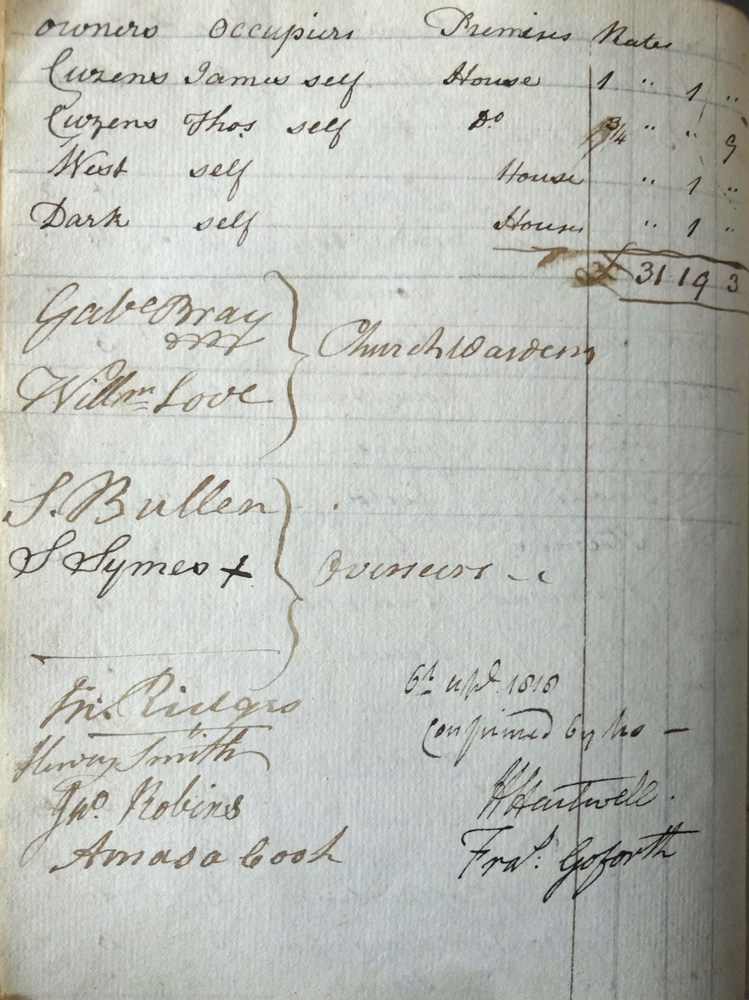 owners occupiers Premises Rates
Cuzens James self House 1 " 1 "
Cuzens Thos self Do 3/4 " " 9
West self House " 1 "
Dark self House " 1 "
31 19 3
Gabe Bray
Churchwardens
Willm Love
S. Bullen
S Symes x Overseers
Ridges
6th apl. 1818
Confirmed by us —
Henry Smith
Jno. Robins
H Hartwell.
Amasa Cook
Fras. Goforth